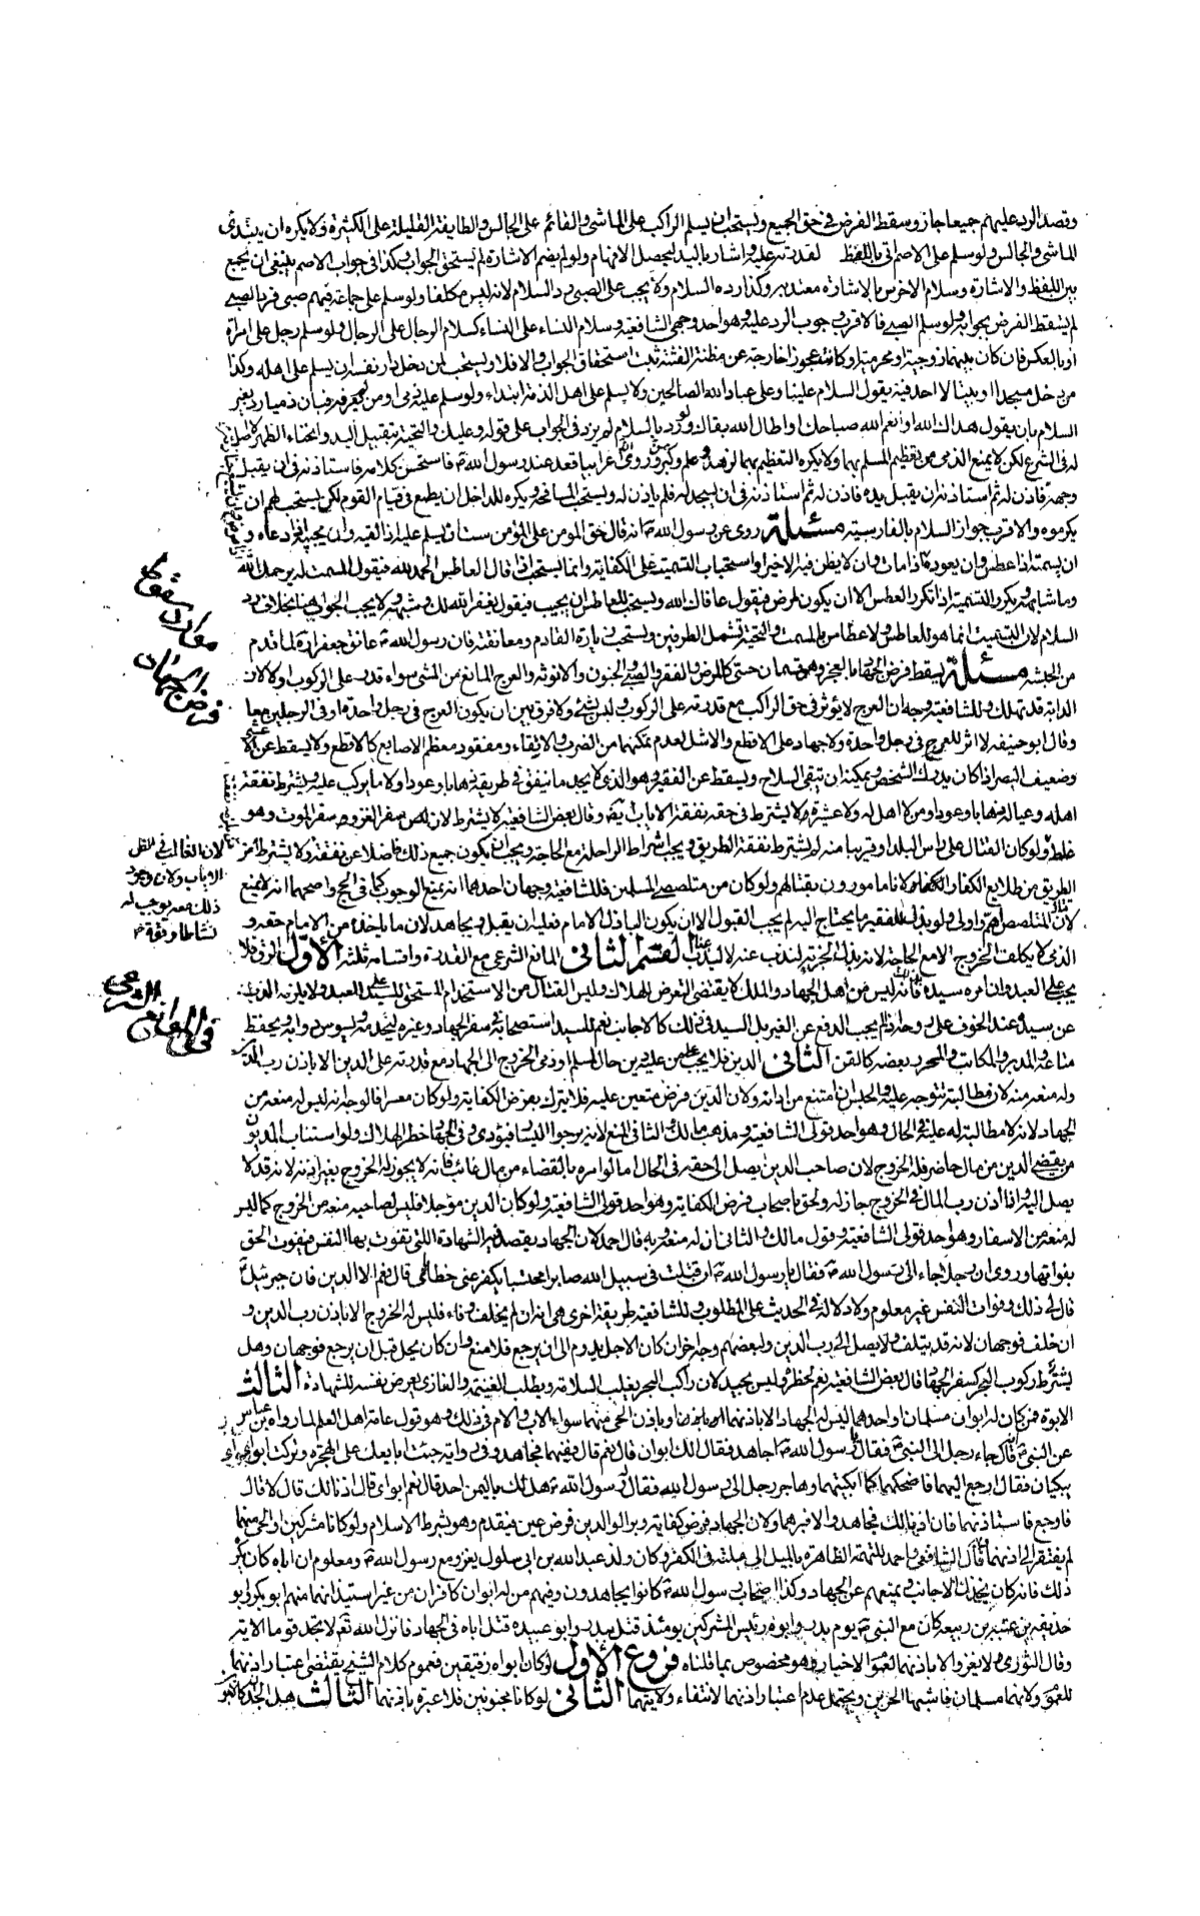 وقصد الرد عليهم جميعا جاز وسقط الفرض في حق الجميع ويستحب ان يسلم الراكب على الماشي والقائم على الجالس والطايفة القليلة على الكثيرة ولا يكره ان يبتدئ
الماشي والجالس ولو سلم على الاصم اتى باللفظ لقدرته عليه واشار باليد ليحصل الافهام ولو لم يضم الاشارة لم يستحق الجواب وكذا في جواب الاصم ينبغي ان يجمع
بين اللفظ والاشارة وسلام الاخرس بالاشارة معتد به وكذا رده السلام ولا يجب على الصبي رد السلام لانه ليس مكلفا ولو سلم على جماعة فيهم صبي فرد الصبي
لم يسقط الفرض بجوابه ولو سلم الصبي فالاقرب وجوب الرد عليه وهو احد وجهي الشافعية وسلام النساء على النساء كسلام الرجال على الرجال ولو سلم رجل على امراة
او بالعكس فان كان بينهما زوجية او محرمية او كانت عجوزا خارجة عن مظنة الفتنة ثبت استحقاق الجواب والا فلا ويستحب لمن دخل دار نفسه ان يسلم على اهله وكذا
من دخل مسجدا او بيتا لا احد فيه يقول السلام علينا وعلى عباد الله الصالحين ولا يسلم على اهل الذمة ابتداء ولو سلم عليه ذمي او من لم يعرفه فبان ذميا رد بغير
السلام بان يقول هداك الله او انعم الله صباحك او اطال الله بقاك ولو رد بالسلام لم يزد في الجواب على قوله وعليك والتحية بتقبيل اليد وانحناء الظهر لا اصل
له في الشرع لكن لا يمنع الذمي من تعظيم المسلم بهما ولا يكره التعظيم بهما لزهد وعلم وكبر سن وروي ان اعرابيا قعد عند رسول الله ص فاستحسن كلامه فاستاذنه في ان يقبل
وجهه فاذن له ثم استاذنه ان يقبل يده فاذن له ثم استاذنه في ان يسجد له فلم ياذن له ويستحب المصافحة ويكره للداخل ان يطمع في قيام القوم لكن يستحب لهم ان
يكرموه والاقرب جواز السلام بالفارسية مسئلة روي عن رسول الله ص انه قال حق المومن على المؤمن ستة ان يسلم عليه اذا لقيه وان يجيبه اذا دعاه و
ان يسمته اذا عطس وان يعوده وان لا يظن فيه الا خيرا واستحباب التسميت على الكفاية وانما يستحب اذا قال العاطس الحمد لله فيقول المسمت له يرحمك الله
وما شابهه ويكرر التسميت اذا تكرر العطس الا ان يكون لمرض فيقول عافاك الله ويستحب للعاطس ان يجيب فيقول يغفر الله لك وشبهه ولا يجب الجواب هنا بخلاف رد
السلام لان التسميت انما هو للعاطس ولا عطاس بالمسمت والتحية تشمل الطرفين ويستحب زيارة القادم ومعانقته فان رسول الله ص عانق جعفرا ره لما قدم
من الحبشة مسئلة يسقط فرض الجهاد بالعجز وهو قسمان حسي كالمرض والفقر والصبي والجنون والانوثة والعرج المانع من المشي سواء قدر على الركوب اولا لان
الدابة قد تهلك وللشافعية وجه ان العرج لا يؤثر في حق الراكب مع قدرته على الركوب وليس بشئ ولا فرق بين ان يكون العرج في رجل واحدة او في الرجلين معا
وقال ابو حنيفة لا اثر للعرج في رجل واحدة ولا جهاد على الاقطع والاشل لعدم تمكنهما من الضرب والاتقاء ومفقود معظم الاصابع كالاقطع ولا يسقط عن الاعشى
وضعيف البصر اذا كان يدرك الشخص ويمكنه ان يتقي السلاح ويسقط عن الفقير وهو الذي لا يجد ما ينفق في طريقه ذهابا وعودا ولا ما يركب عليه ويشترط نفقة
اهله وعياله ذهابا وعودا ومن لا اهل له ولا عشيرة لا يشترط في حقه نفقة الاياب وقال بعض الشافعية لا يشترط لان سفر الغزو سفر الموت وهو
غلط ولو كان القتال على باس البلد او قريبا منه لم يشترط نفقة الطريق ويجب اشتراط الراحلة مع الحاجة ويجب ان يكون جميع ذلك فاضلا عن نفقة ولا يشترط امن
الطريق من طلايع الكفار الكفار لانا مامورون بقتالهم ولو كان من متلصصي المسلمين فللشافعية وجهان احدهما انه يمنع الوجوب كما في الحج واصحهما انه لا يمنع
لان قتال المتلصص اهم واولى ولو بذل للفقير ما يحتاج اليه لم يجب القبول الا ان يكون الباذل الامام فعليه ان يقبل ويجاهد لان ما ياخذه من الامام حقه و
الذمي لا يكلف الخروج الا مع الحاجة لانه بذل الجزية لنذب عنه لا ليذب عنا القسم الثاني المانع الشرعي مع القدرة واقسامه ثلثة الاول الرق فلا
يجب على العبد وان امره سيده لانه ليس من اهل الجهاد والملك لا يقتضي التعرض للهلاك وليس القتال من الاستخدام المستحق للسيد على العبد ولا يلزمه الذب
عن سيده عند الخوف على روحه اذا لم يجب الدفع عن الغير بل السيد في ذلك كالاجانب نعم للسيد استصحابه في سفر الجهاد وغيره ليخدمه ويسوس دوابه ويحفظ
متاعه والمدبر والمكاتب والمحرر بعضه كالقن الثاني الدين فلا يجب على من عليه دين حال لمسلم او ذمي الخروج الى الجهاد مع قدرته على الدين الا باذن رب الدين
وله منعه منه لان مطالبته تتوجه عليه والحبس ان امتنع من ادائه ولان الدين فرض متعين عليه فلا يترك بفرض الكفاية ولو كان معسرا فالوجه انه ليس له منعه من
الجهاد لانه لا مطالبة له عليه في الحال وهو احد قولي الشافعية ومذهب مالك والثاني المنع لانه يرجو اليسار فيؤدي وفي الجهاد خطر الهلاك ولو استناب المديون
من يقضي الدين من مال حاضر فله الخروج لان صاحب الدين يصل الى حقه في الحال اما لو امره بالقضاء من مال غائب فانه لا يجوز له الخروج بغير اذنه لانه قد لا
يصل اليه واذا اذن رب المال في الخروج جاز له ولحق باصحاب فرض الكفاية وهو احد قولي الشافعية ولو كان الدين مؤجلا فليس لصاحبه منعه من الخروج كما ليس
له منعه من الاسفار وهو احد قولي الشافعية وقول مالك والثاني ان له منعه وبه قال احمد لان الجهاد يقصد فيه الشهادة التي تفوت بها النفس فيفوت الحق
بفواتها وروي ان رجلا جاء الى رسول الله ص فقال يا رسول الله ص ان قتلت في سبيل الله صابرا محتسبا يكفر عني خطاياي قال نعم الا الدين فان جبرئيل ع
قال لي ذلك وفوات النفس غير معلوم ولا دلالة في الحديث على المطلوب وللشافعية طريقة اخرى هي انه ان لم يخلف وفاء فليس له الخروج الا باذن رب الدين و
ان خلف فوجهان لانه قد يتلف ولا يصل الى رب الدين ولبعضهم وجه اخر ان كان الاجل يدوم الى ان يرجع فلا منع وان كان يحل قبل ان يرجع فوجهان وهل
يشترط ركوب البحر كسفر الجهاد قال بعض الشافعية نعم لخطره وليس بجيد لان راكب البحر يغلب السلامة ويطلب الغنيمة والغازي يعرض نفسه للشهادة الثالث
الابوة فمن كان له ابوان مسلمان او احدهما ليس له الجهاد الا باذنهما او باذن الحي منهما سواء الاب والام في ذلك وهو قول عامة اهل العلم لما رواه ابن عباس
عن النبي ص قال جاء رجل الى النبي ص فقال يا رسول الله ص اجاهد فقال الك ابوان قال نعم قال ففيهما فجاهد وفي رواية جئت ابايعك على الهجرة وتركت ابواي
يبكيان فقال ارجع اليهما فاضحكهما كما ابكيتهما وهاجر رجل الى رسول الله فقال رسول الله ص هل لك باليمن احد قال نعم ابواي قال اذنا لك قال لا قال
فارجع فاستاذنهما فان اذنا لك فجاهد والا فبرهما ولان الجهاد فرض كفاية وبر الوالدين فرض عين فيقدم وهو بشرط الاسلام ولو كانا مشركين او الحي منهما
لم يفتقر الى اذنهما قال الشافعي واحمد للتهمة الظاهرة بالميل الى ملته في الكفر وكان ولد عبد الله بن ابي سلول يغزو مع رسول الله ص ومعلوم ان اباه كان يكره
ذلك فانه كان يخذل الاجانب ويمنعهم عن الجهاد وكذا اصحاب رسول الله ص كانوا يجاهدون وفيهم من له ابوان كافران من غير استيذانهما منهم ابو بكر وابو
حذيفة بن عتبة بن ربيعة كان مع النبي ص يوم بدر وابوه رئيس المشركين يومئذ قتل ببدر وابو عبيدة قتل اباه في الجهاد فانزل الله تعم لا تجد قوما الاية
وقال الثوري لا يغزو الا باذنهما لعموم الاخبار وهو مخصوص بما قلناه فروع الاول لو كان ابواه رقيقين فعموم كلام الشيخ يقتضي اعتبار اذنهما
للعموم ولانهما مسلمان فاشبها الحرين ويحتمل عدم اعتبار اذنهما لانتفاء ولايتهما الثاني لو كانا مجنونين فلا عبرة باذنهما الثالث هل الجدان كالابوين
موارد سقوط
فرض الجهاد
لان الغالب في الظن
الاياب ولان وجود
ذلك معه يوجب له
نشاطا وقوة
في المانع الشرعي